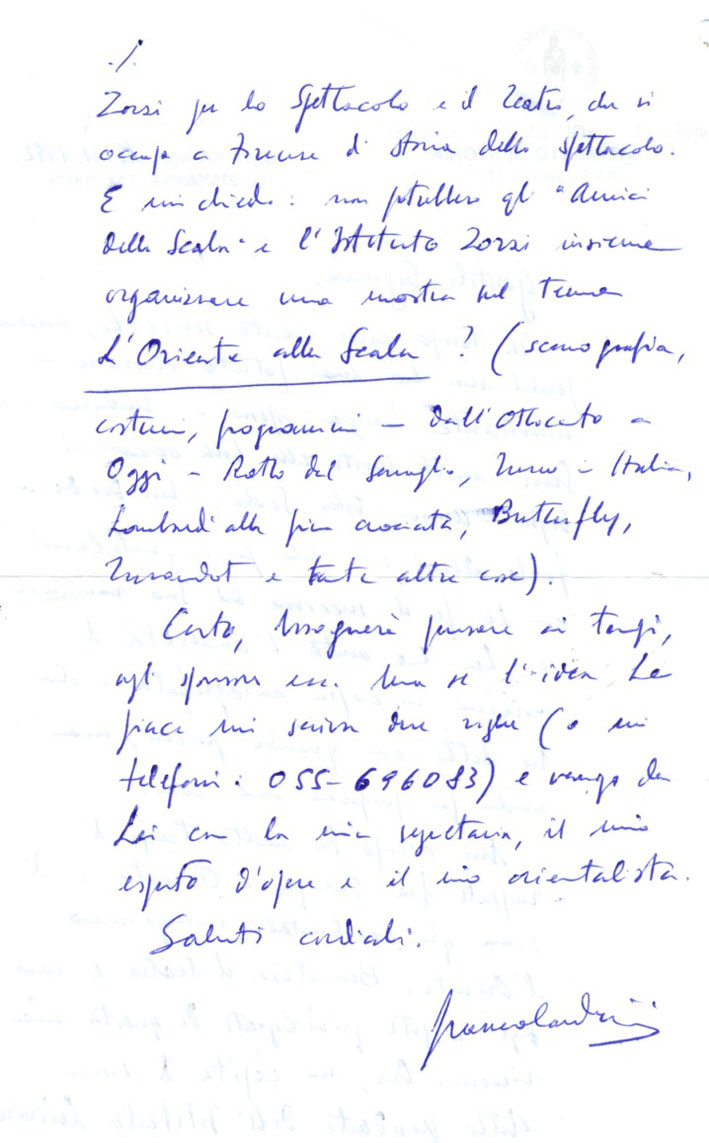 ./.
Zorzi per lo Spettacolo e il Teatro, che si
occupa a Firenze di storia dello spettacolo.
E mi chiedo: non potrebbero gli "Amici
della Scala" e l'Istituto Zorzi insieme
organizzare una mostra sul tema
L'Oriente alla Scala? (scenografia,
costumi, programmi – dall'Ottocento a
Oggi – Ratto del Serraglio, Turco in Italia,
Lombardi alla prima crociata, Butterfly,
Turandot e tante altre cose).
Certo, bisognerà pensare ai tempi,
agli sponsor ecc. Ma se l'idea Le
piace mi scriva due righe (o mi
telefoni: 055-696083) e vengo da
Lei con la mia segretaria, il mio
esperto d'opera e il mio orientalista.
Saluti cordiali.
Franco Cardini